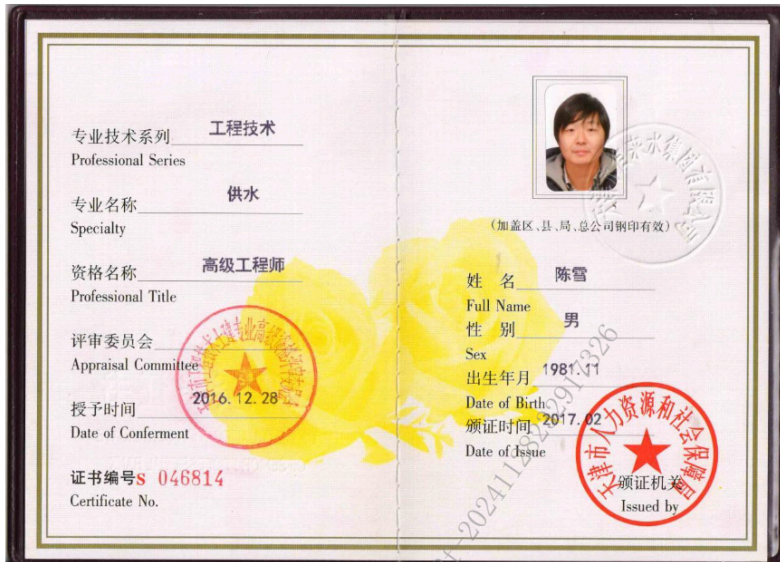 专业技术系列 工程技术
Professional Series
专业名称 供水
Specialty
资格名称 高级工程师
Professional Title
评审委员会
Appraisal Committee
授予时间 2016.12.28
Date of Conferment
证书编号S 046814
Certificate No.
(加盖区、县、局、总公司钢印有效)
姓 名 陈雪
Full Name
性 别 男
Sex
出生年月 1981.11
Date of Birth
颁证时间 2017.02
Date of Issue
天津市人力资源和社会保障局
颁证机关
Issued by